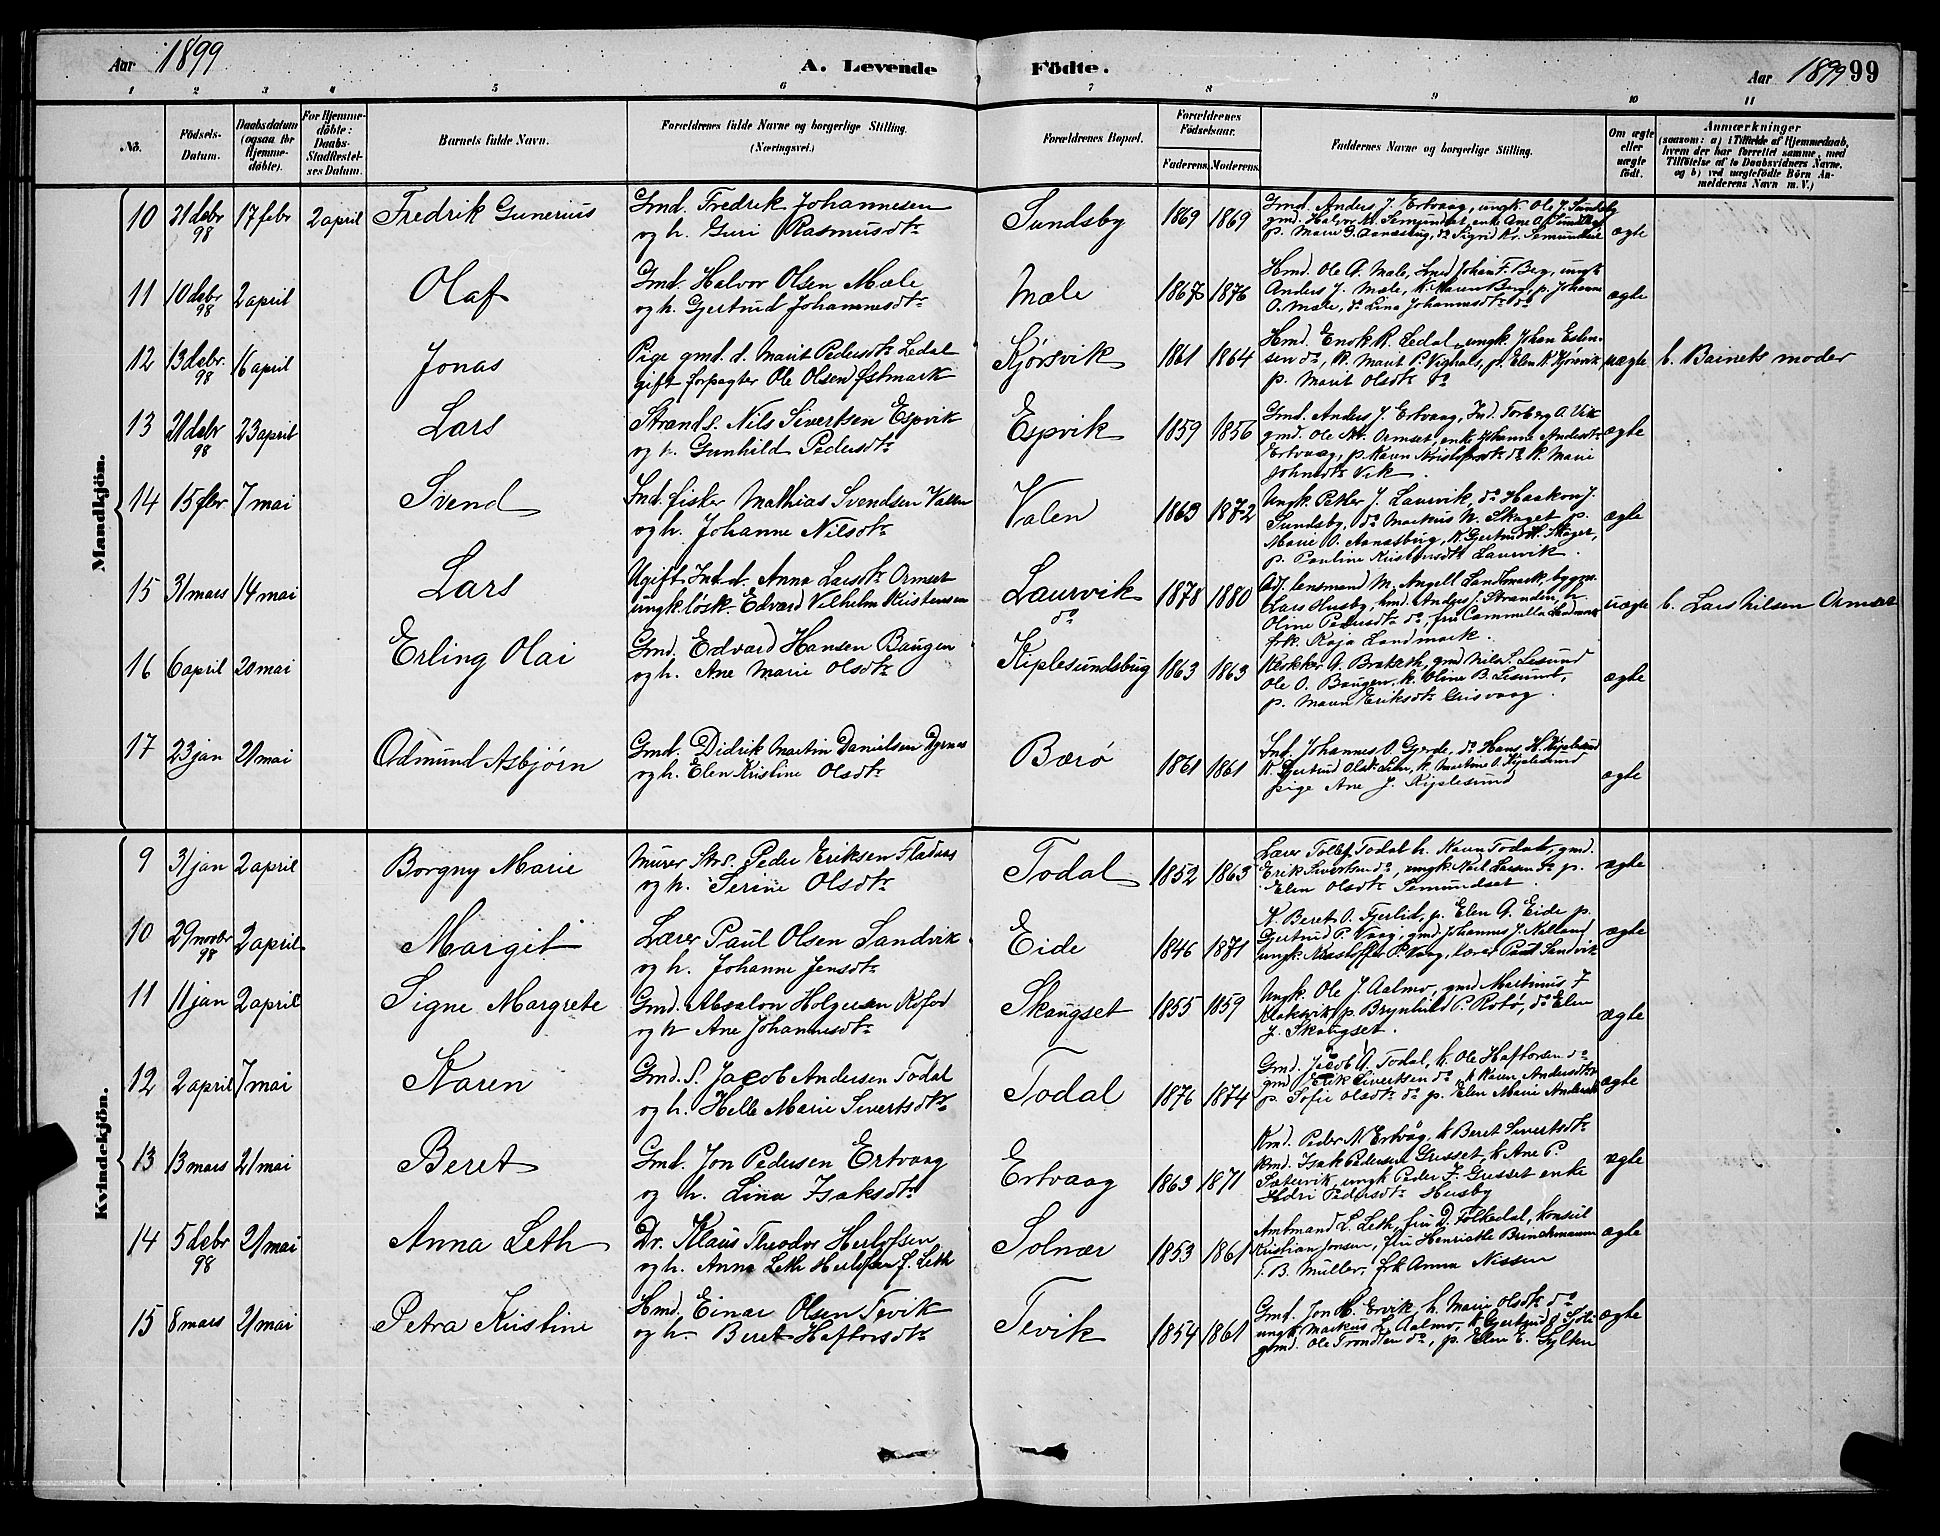 Aar 1899
A. Levende Födte.
Aar 1899 99
1 2 3 4 5 6 7 8 9 10 11
No.
Födsels-Datum.
Daabsdatum (ogsaa for Hjemme-döbte).
For Hjemme-döbte: Daabs-Stadfæstel-ses Datum.
Barnets fulde Navn.
Forældrenes fulde Navne og borgerlige Stilling.
(Næringsvei.)
Forældrenes Bopæl.
Forældrenes Födselsaar.
Faderens. Moderens.
Faddernes Navne og borgerlige Stilling.
Om ægte eller uægte födt.
Anmærkninger
(saasom: a) i Tilfælde af Hjemmedaab,
hvem der har forrettet samme, med
Tilföielse af to Daabsvidners Navne.
og b) ved uægtefödte Börn An-
melderens Navn m. V.)
Mandkjön.
10 21 debr 98 17 febr 2 april Fredrik Gunerius Gmd. Fredrik Johannesen
og h. Guri Rasmusdtr Sundsby 1869 1869
Gmd. Anders J. Ertvaag, ungk. Ole J. Sundsby
gmd. Halvor Semundset, enk. Ane
p. Marie Sigrid Kr. Semundset ægte
11 10 debr 98 2 april Olaf Gmd. Halvor Olsen Mæle
og h. Gjertrud Johannesdtr Mæle 1867 1876
Hmd. Ole A. Mæle, Smed Johan F. Berg, ungk.
Anders J. Mæle, k. Karen Berg, p. Johanna
O. Mæle, do Lina Johannesdtr do ægte
12 13 debr. 98 16 april Jonas Pige gmd. d. Marit Pedersdtr Ledal
gift forpagter Ole Olsen Østmark Kjørsvik 1861 1864
Hmd. Enok R. Ledal, ungk. Johan Esten-
sen do, k. Marit P. Vighals, p. Elen K. Kjørsvik
p. Marit Olsdtr do uægte b. Barnets moder
13 21 debr 98 23 april Lars Strands. Nils Sivertsen Espvik
og h. Gunhild Pedersdtr Espvik 1859 1856
Gmd. Anders J. Ertvaag, Ind. Torberg O. Vik
gmd. Ole M. Ormset, enk. Johanna Andersdtr
Ertvaag, p. Karen Kristofersdtr do k. Mari
Johnsdtr Vik ægte
14 15 febr 7 mai Svend Ind. fisker Mathias Svendsen Valen
og h. Johanne Nilsdtr Valen 1863 1872
Ungk. Petter J. Laurvik, do Haakon J.
Sundsby, do Markus N. Skaget p.
Marie O. k. Gjertrud H. Skaget,
p. Pauline Kristensdtr Laurvik. ægte
15 31 mars 14 mai Lars Ugift Ind. d. Anna Larsdtr Ormset
ungk. løsk. Edvard Vilhelm Kristensen Laurvik do 1878 1880
Adj. lensmand M. Angell Landmark, bygm.
Lars Husby, hmd. Anders J. Stranden h.
Oline Pedersdtr do, fru Landmark
frk. Kaja Landmark. uægte b. Lars Nilsen Ormset
16 6 april 20 mai Erling Olai Gmd. Edvard Hansen Baugen
og h. Ane Marie Olsdtr Kiplesundsbug 1863 1863
gmd Nils S. Lesund
Ole O. Baugen, k. Oline B. Lesund,
p. Maren Eriksdtr Grisvaag. ægte
17 23 jan 21 mai Odmund Asbjørn Gmd. Didrik Martin Danielsen Dyrnes
og h. Elen Kristine Olsdtr Bærø 1861 1861
Ind. Johannes O. Gjerde, do Hans H. Kiplesund
k. Gjertrud Olsdtr k. Martine O. Kiplesund
pige Ane J. Kiplesund ægte
Kvindekjön.
9 31 jan 2 april Borgny Marie Murer Strs. Peder Eriksen Fladaas
og h. Serine Olsdtr Todal 1852 1863
Lærer Tollef Todal h. Karen Todal, gmd.
Erik Sivertsen do, ungk. Larsen do p.
Elen Olsdtr Semundset. ægte
10 29 novbr 98 2 april Margit Lærer Paul Olsen Sandvik
og h. Johanne Jensdtr Eide 1846 1871
K. Beret O. Fjerlid, p. Elen G. Eide p.
Gjertrud P. Vaag, gmd. Johannes J. Nalland,
ungk. Kristoffer P. Vaag, lærer Paul Sandvik ægte
11 11 jan 2 april Signe Margrete Gmd. Absalon Holgersen Rofod
og h Ane Johannesdtr Skaugset 1855 1859
Ungk. Ole J. Aalmo, gmd Martinus J
p. Brynhild P. Robø, do Elen
J. Skaugset. ægte
12 2 april 7 mai Karen Gmd. S. Jacob Andersen Todal
og h. Helle Marie Sivertsdtr Todal 1876 1874
Gmd. Jacob A. Todal, k. Ole Haftorsen do
gmd Erik Sivertsen do k Karen Andersdtr
p. Sofie Olsdtr do p. Elen Marie Andersdtr ægte
13 13 mars 21 mai Beret Gmd. Jon Pedersen Ertvaag
og h. Lina Isaksdtr Ertvaag 1863 1871
Kmd. Peder N Ertvåg, k Beret Sivertsdtr
Kmd. Isak Pedersen Gresset, k Ane P.
Sætervik, ungk Peder I. Gresset enke
Pedersdtr Husby ægte
14 5 debr 98 21 mai Anna Leth Dr. Klaus Theodor Herlofsen
og h. Anna Leth Herlofsen f. Leth Solnær 1853 1861
Amtmand L. Leth, fru D. Folkedal, konsul
Kristian Jonsen, fru Henriette Brinchmann
T. B. Müller, frk Anna Nissen ægte
15 8 mars 21 mai Petra Kristine Hmd. Einar Olsen Tevik
og h Beret Haftorsdtr Tevik 1854 1861
Gmd. Jon H. Ervik h. Marie Olsdtr do
ungk. Markus L. Aalmo, k. Gjertrud
gmd. Ole Trondsen do, p. Elen E. Gylten ægte